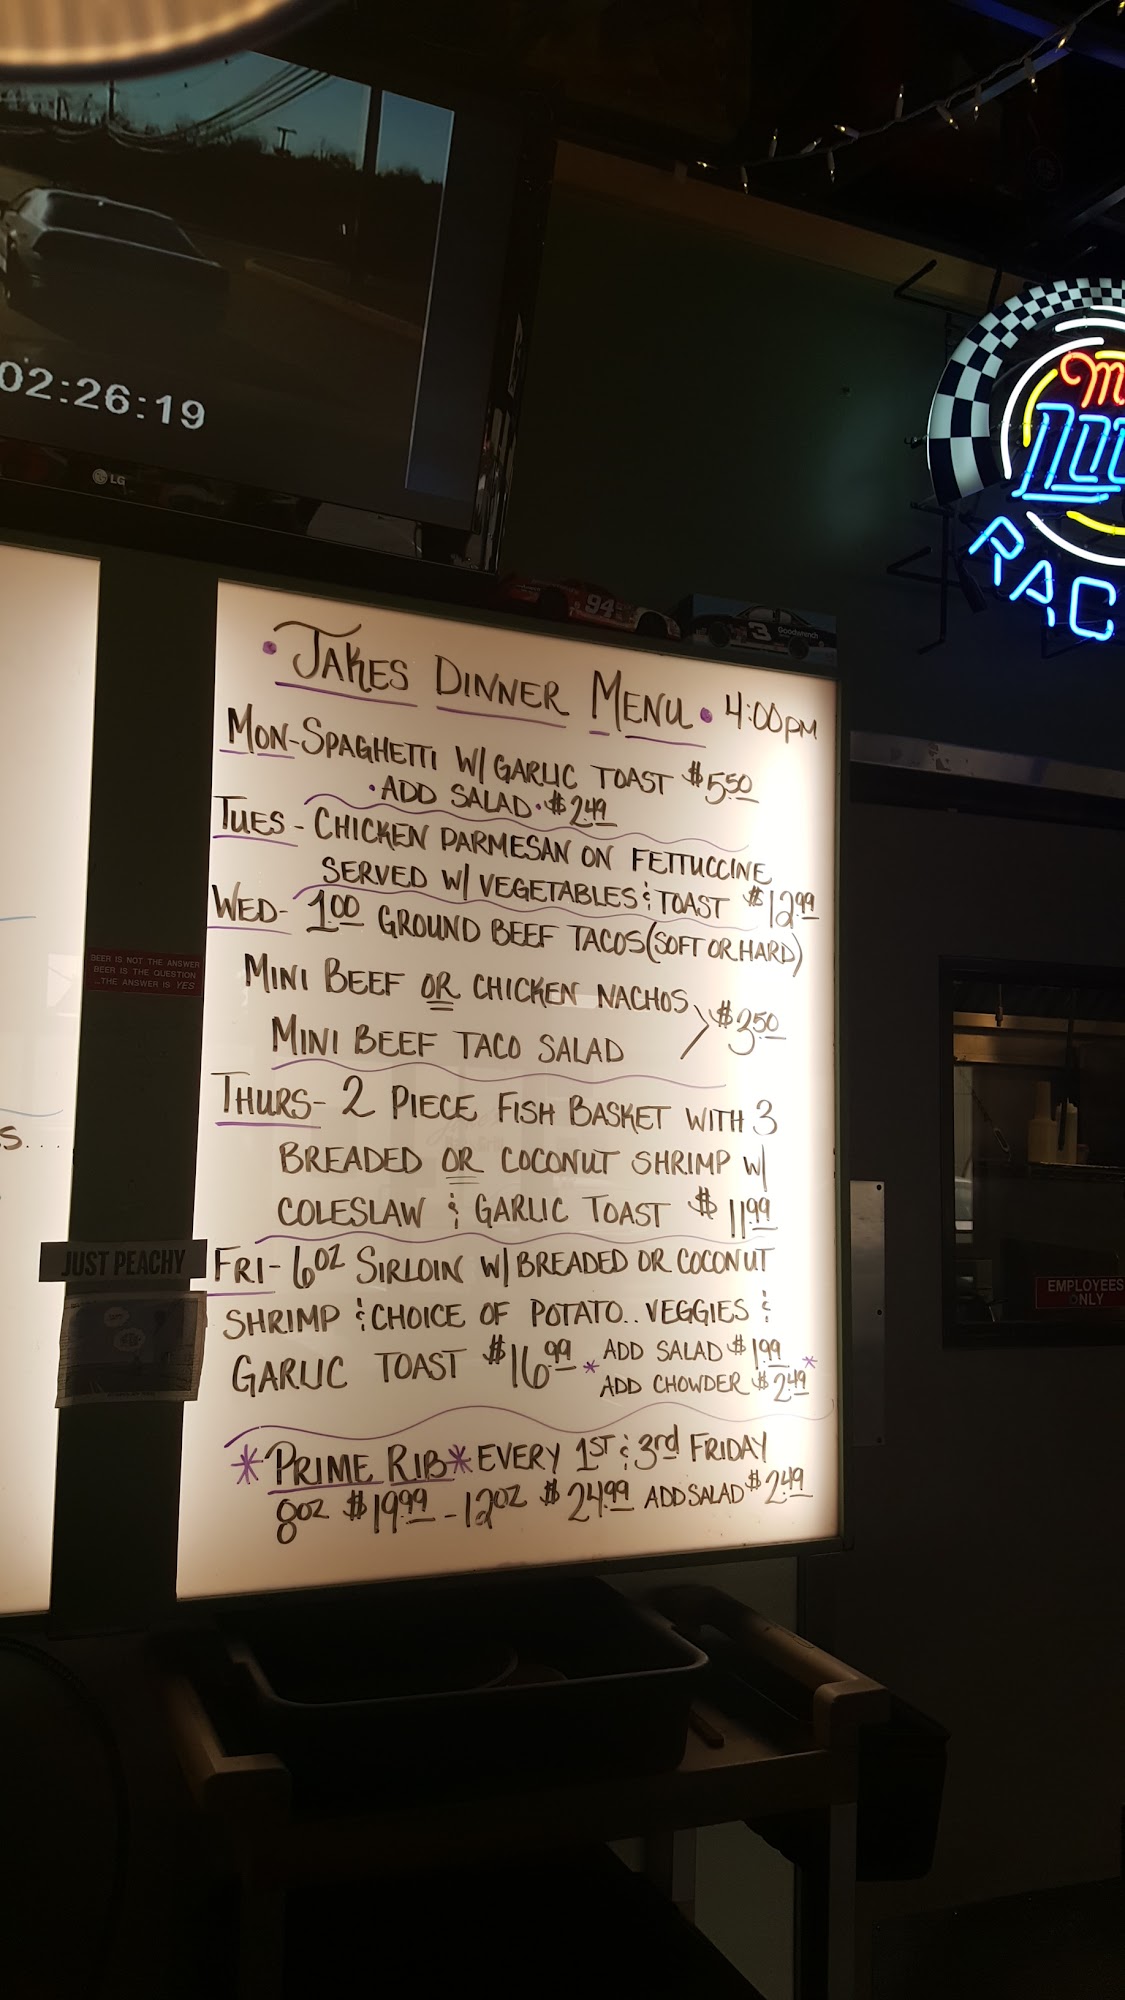 02:26:19
LG
94
3 Goodwrench
RAC
• JAKES DINNER MENU • 4:00PM
MON-SPAGHETTI W/ GARLIC TOAST $5.50
• ADD SALAD • $2.49
TUES - CHICKEN PARMESAN ON FETTUCCINE
SERVED W/ VEGETABLES & TOAST $12.99
WED- 1.00 GROUND BEEF TACOS (SOFT OR HARD)
MINI BEEF OR CHICKEN NACHOS
MINI BEEF TACO SALAD > $3.50
THURS- 2 PIECE FISH BASKET WITH 3
BREADED OR COCONUT SHRIMP W/
COLESLAW & GARLIC TOAST $11.99
FRI- 6OZ SIRLOIN W/ BREADED OR COCONUT
SHRIMP & CHOICE OF POTATO.. VEGGIES &
GARLIC TOAST $16.99 * ADD SALAD $1.99 *
ADD CHOWDER $2.49
*PRIME RIB* EVERY 1ST & 3rd FRIDAY
8OZ $19.99 - 12OZ $24.99 ADD SALAD $2.49
BEER IS NOT THE ANSWER
BEER IS THE QUESTION
...THE ANSWER IS YES
S....
JUST PEACHY
EMPLOYEES
ONLY